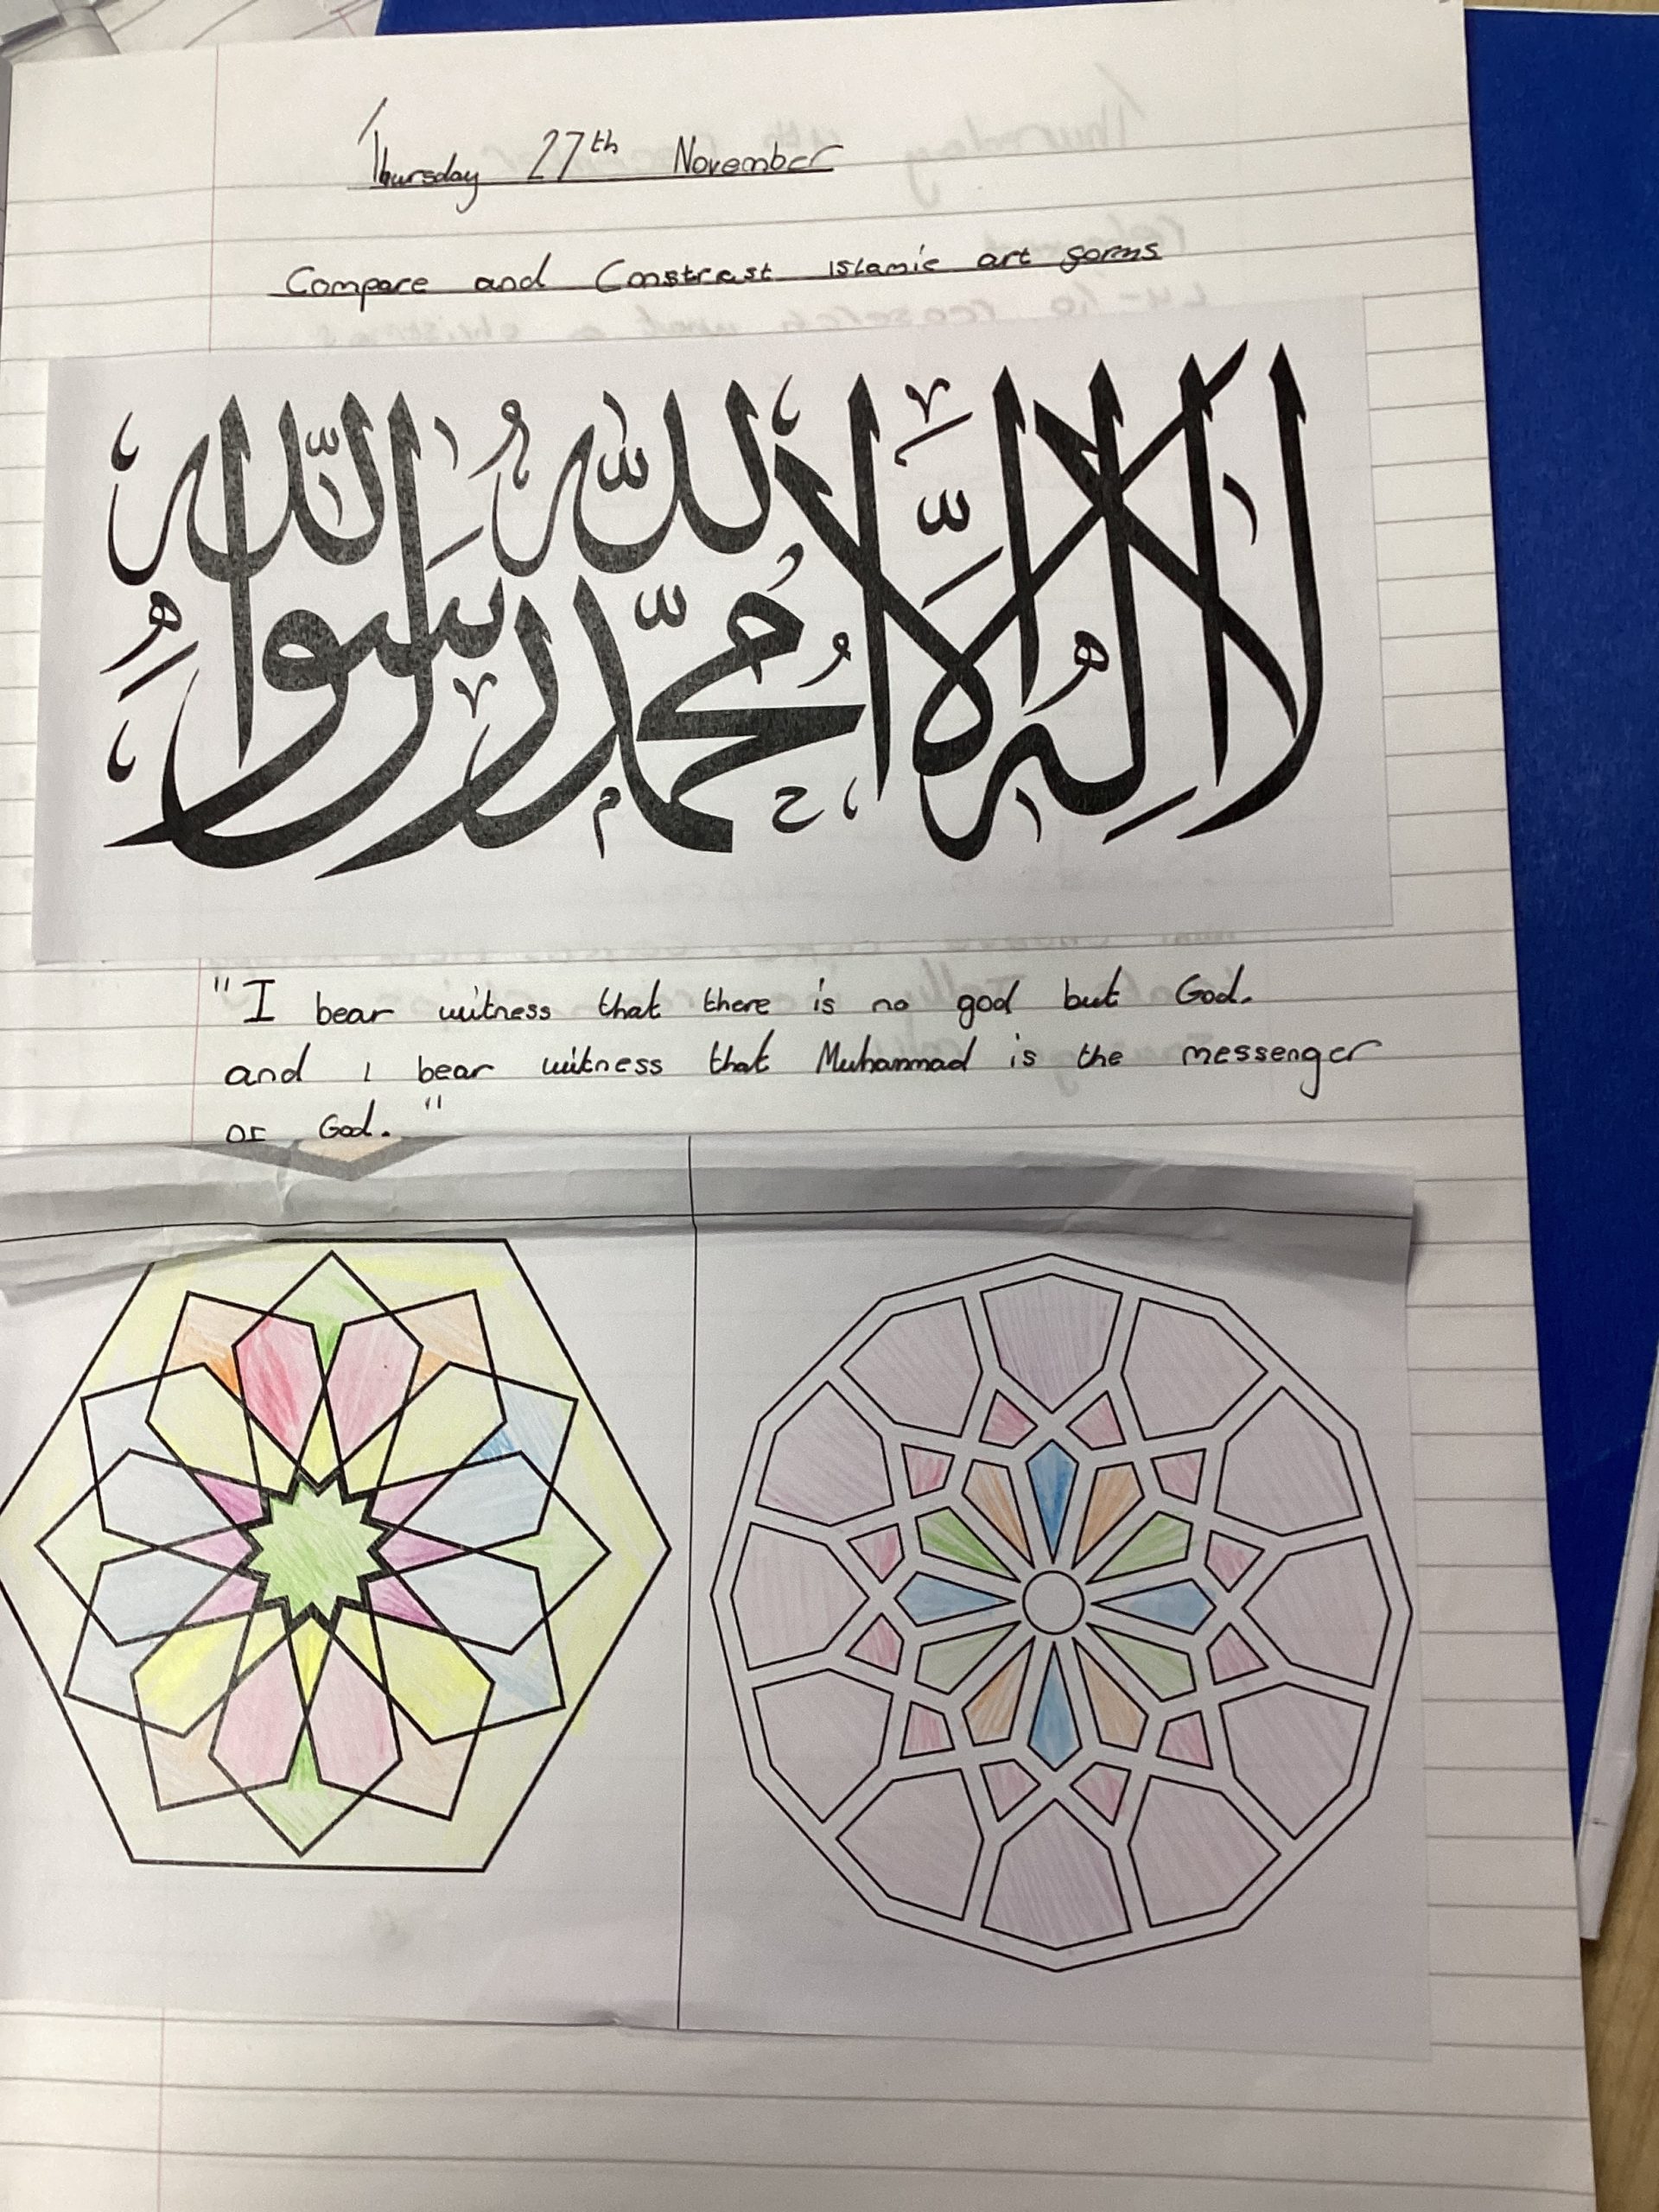 Thursday 27th November
Compare and Constrast islamic art forms
لا إله إلا الله محمد رسول الله
"I bear witness that there is no god but God.
and i bear witness that Muhammad is the messenger
of God."